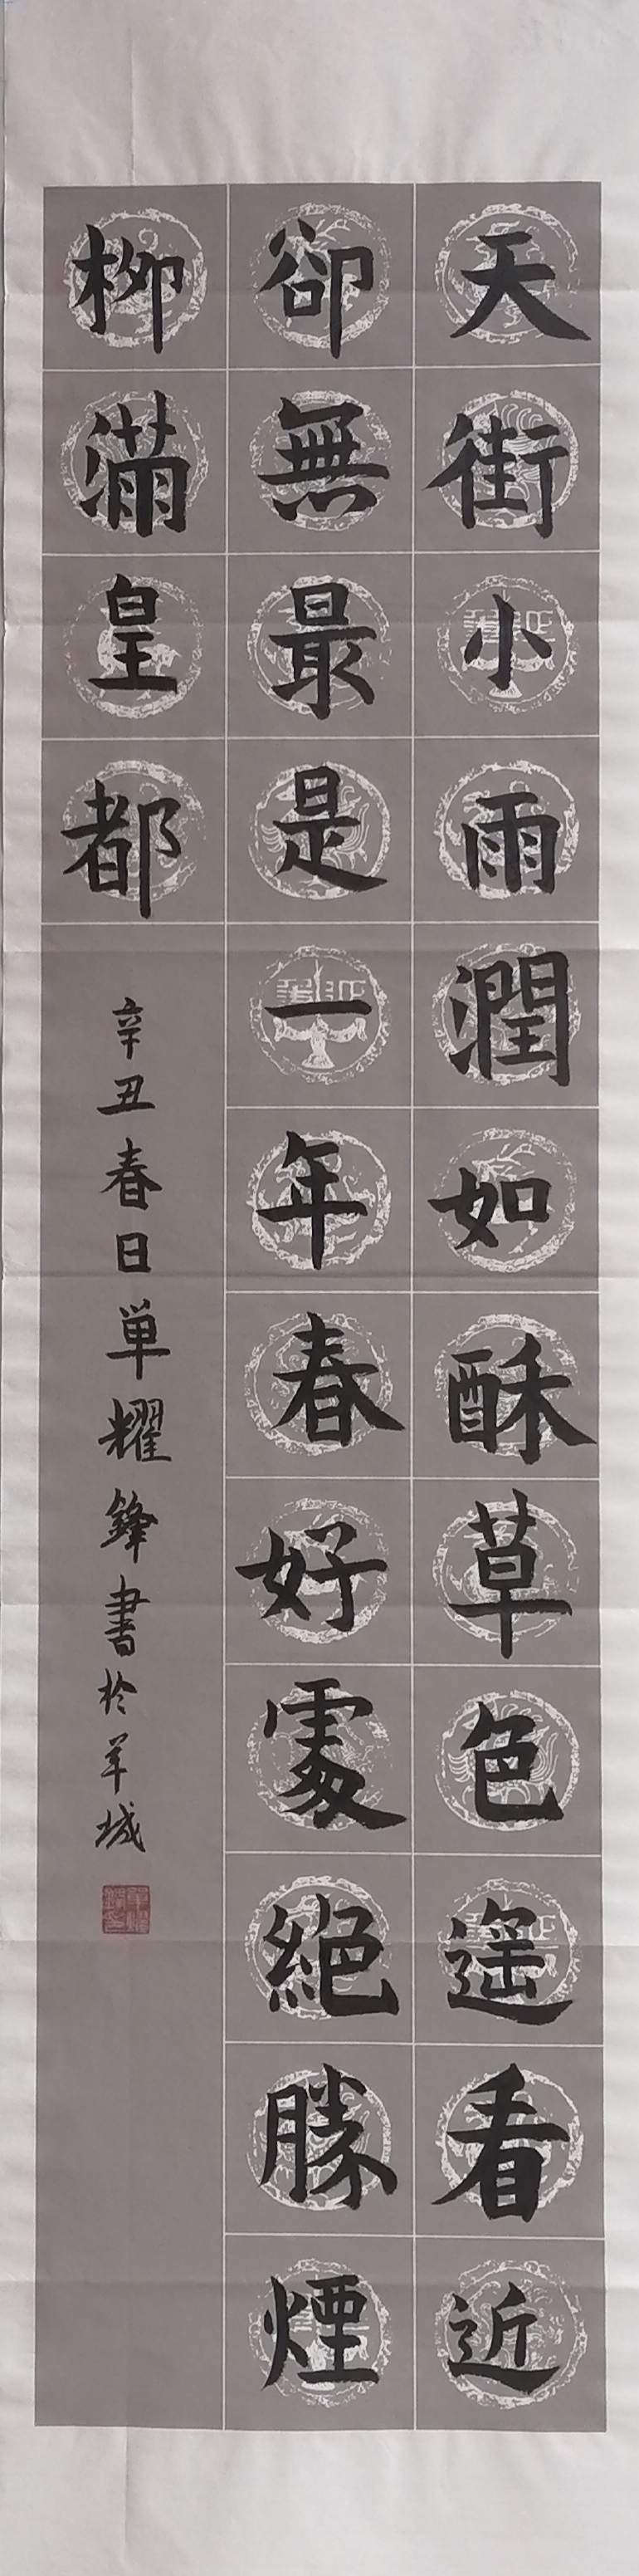 天街小雨潤如酥草色遥看近
卻無最是一年春好處絕勝煙
柳滿皇都
辛丑春日单耀鋒書於羊城